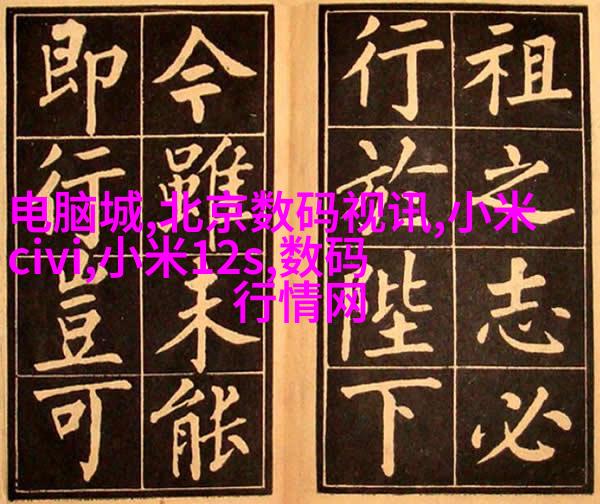 祖之志必
行於陛下
今雖未能
即行豈可
电脑城,北京数码视讯,小米
civi,小米12s,数码
行情网